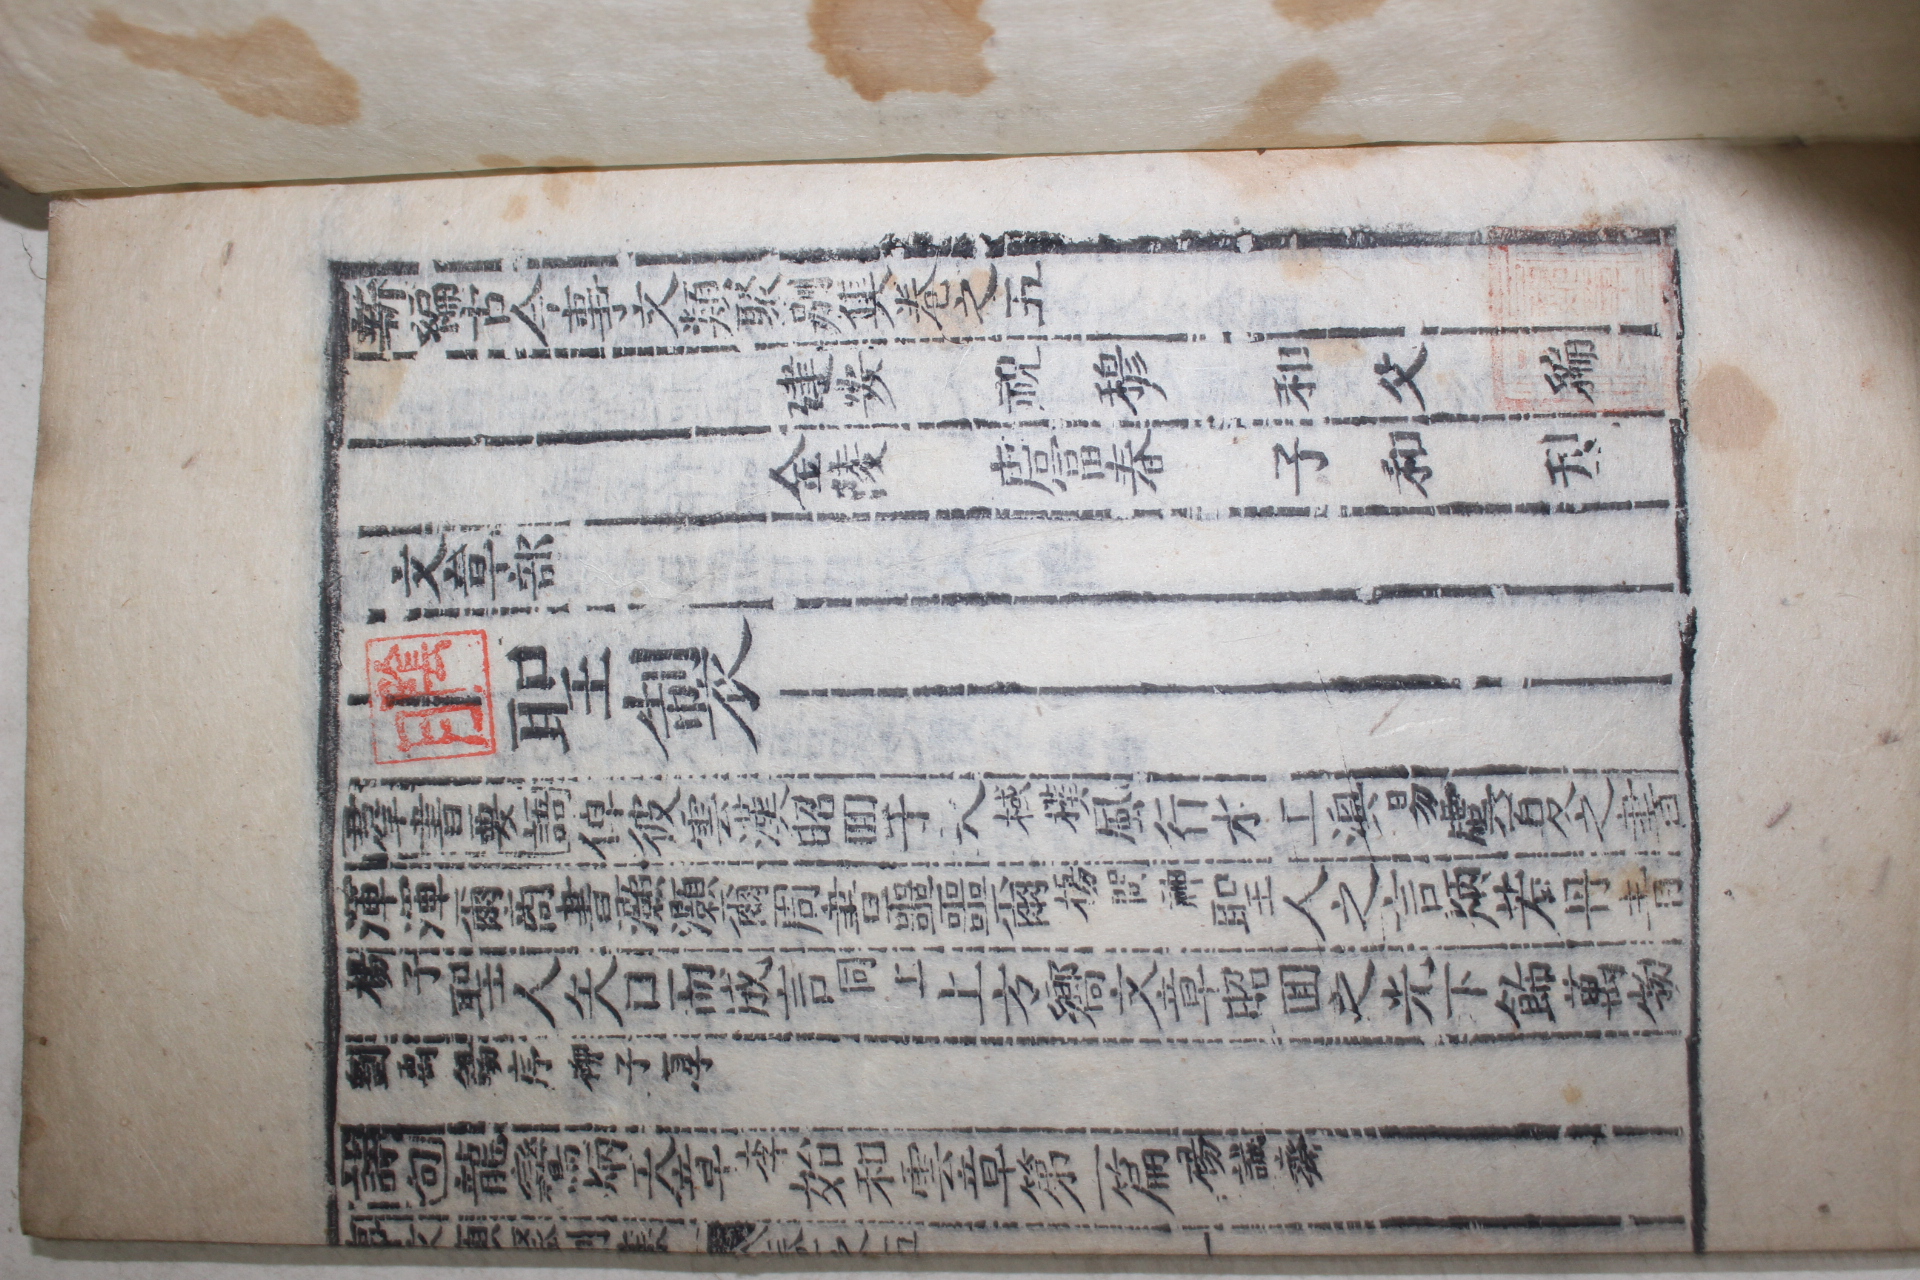 新編古今事文類聚別集卷之五
建安 祝 穆 和 父 編
金陵 唐富春 子 和 刊
文章部
聖製
羣書要語倬彼雲漢昭囬于天棫樸風行水上渙易虞夏之書
渾渾爾商書灝灝爾周書噩噩爾楊問神聖人之言炳若丹青
楊子聖人矢口而成言同上上方嚮文章昭囬之光下飾萬物
劉禹錫序柳子厚
詩句龍鸞炳天章李始和雲章第一篇楊誠齋